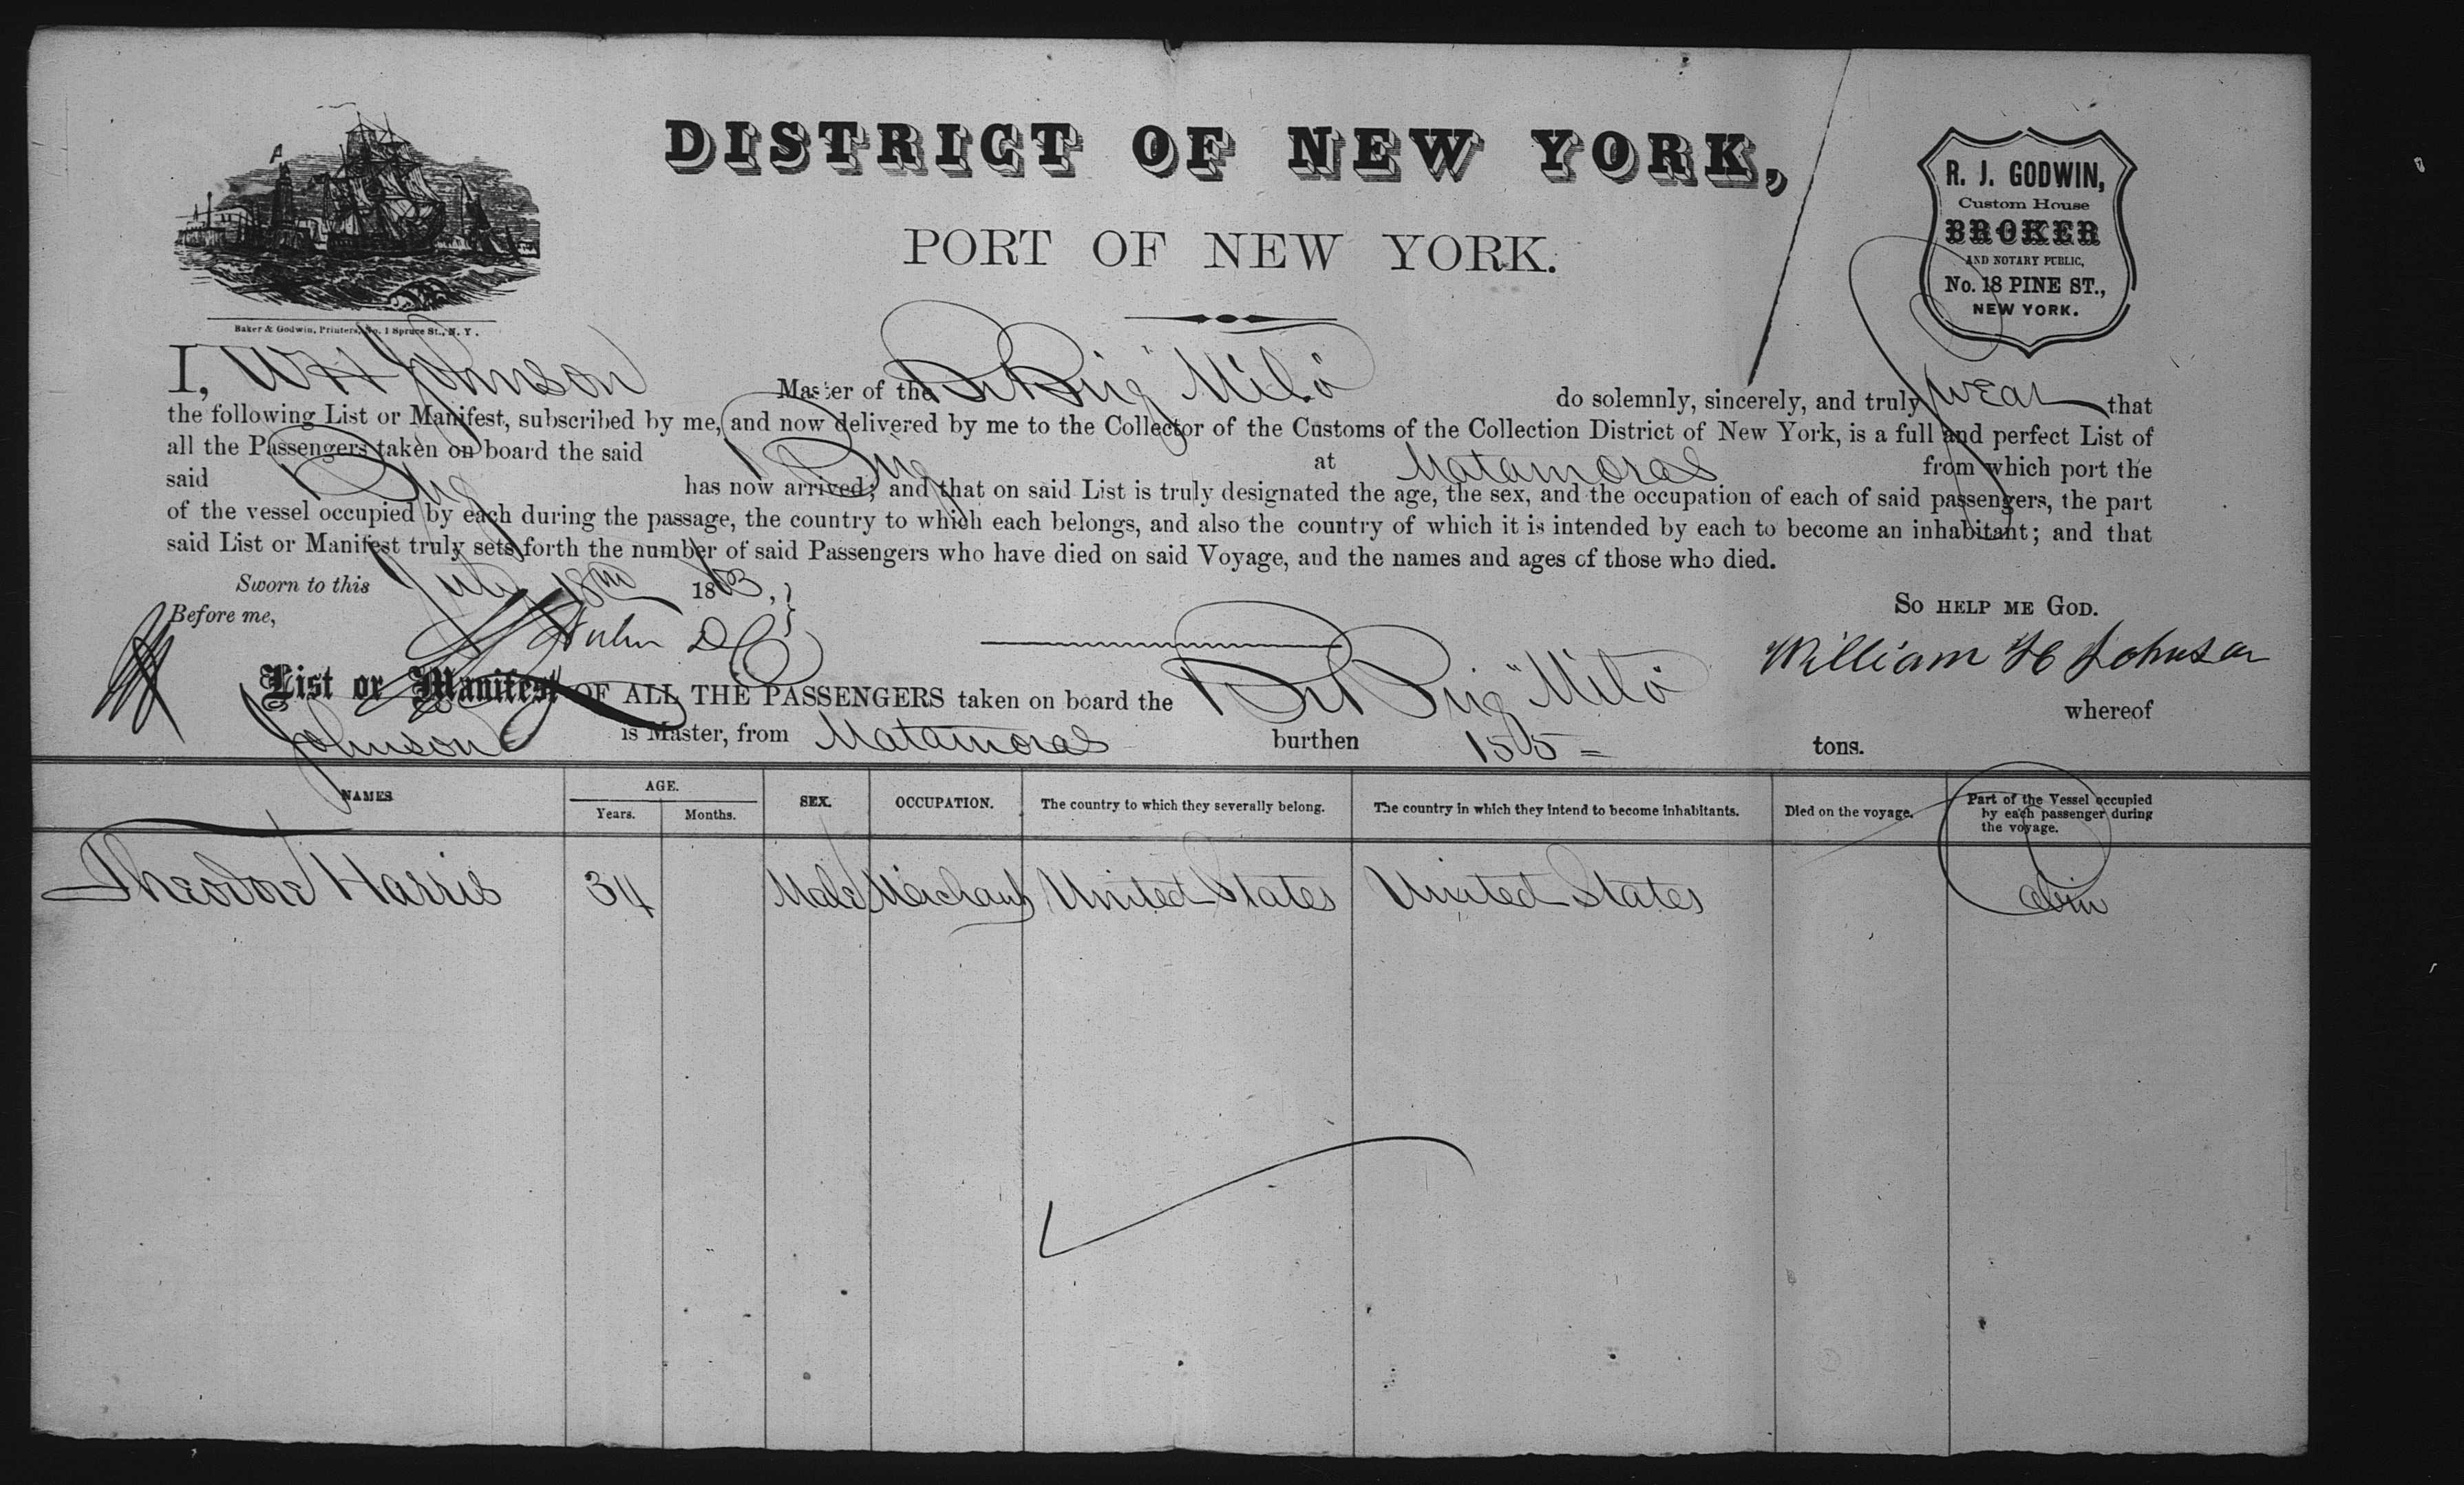 DISTRICT OF NEW YORK,
PORT OF NEW YORK.
R. J. GODWIN,
Custom House
BROKER
AND NOTARY PUBLIC,
No. 18 PINE ST.,
NEW YORK.
Baker & Godwin, Printers, No. 1 Spruce St., N. Y.
I, W H Johnson Master of the Br Brig "Milo" do solemnly, sincerely, and truly swear that
the following List or Manifest, subscribed by me, and now delivered by me to the Collector of the Customs of the Collection District of New York, is a full and perfect List of
all the Passengers taken on board the said Brig at Matamoras from which port the
said Brig has now arrived; and that on said List is truly designated the age, the sex, and the occupation of each of said passengers, the part
of the vessel occupied by each during the passage, the country to which each belongs, and also the country of which it is intended by each to become an inhabitant; and that
said List or Manifest truly sets forth the number of said Passengers who have died on said Voyage, and the names and ages of those who died.
Sworn to this July 18th 1863,
So HELP ME GOD.
Before me,
William H Johnson
List or Manifest OF ALL THE PASSENGERS taken on board the Br Brig "Milo" whereof
Johnson is Master, from Matamoras burthen 155 = tons.
NAMES AGE. Years. Months. SEX. OCCUPATION. The country to which they severally belong. The country in which they intend to become inhabitants. Died on the voyage. Part of the Vessel occupied by each passenger during the voyage.
Theodore Harris 34 Male Merchant United States United States Cabin